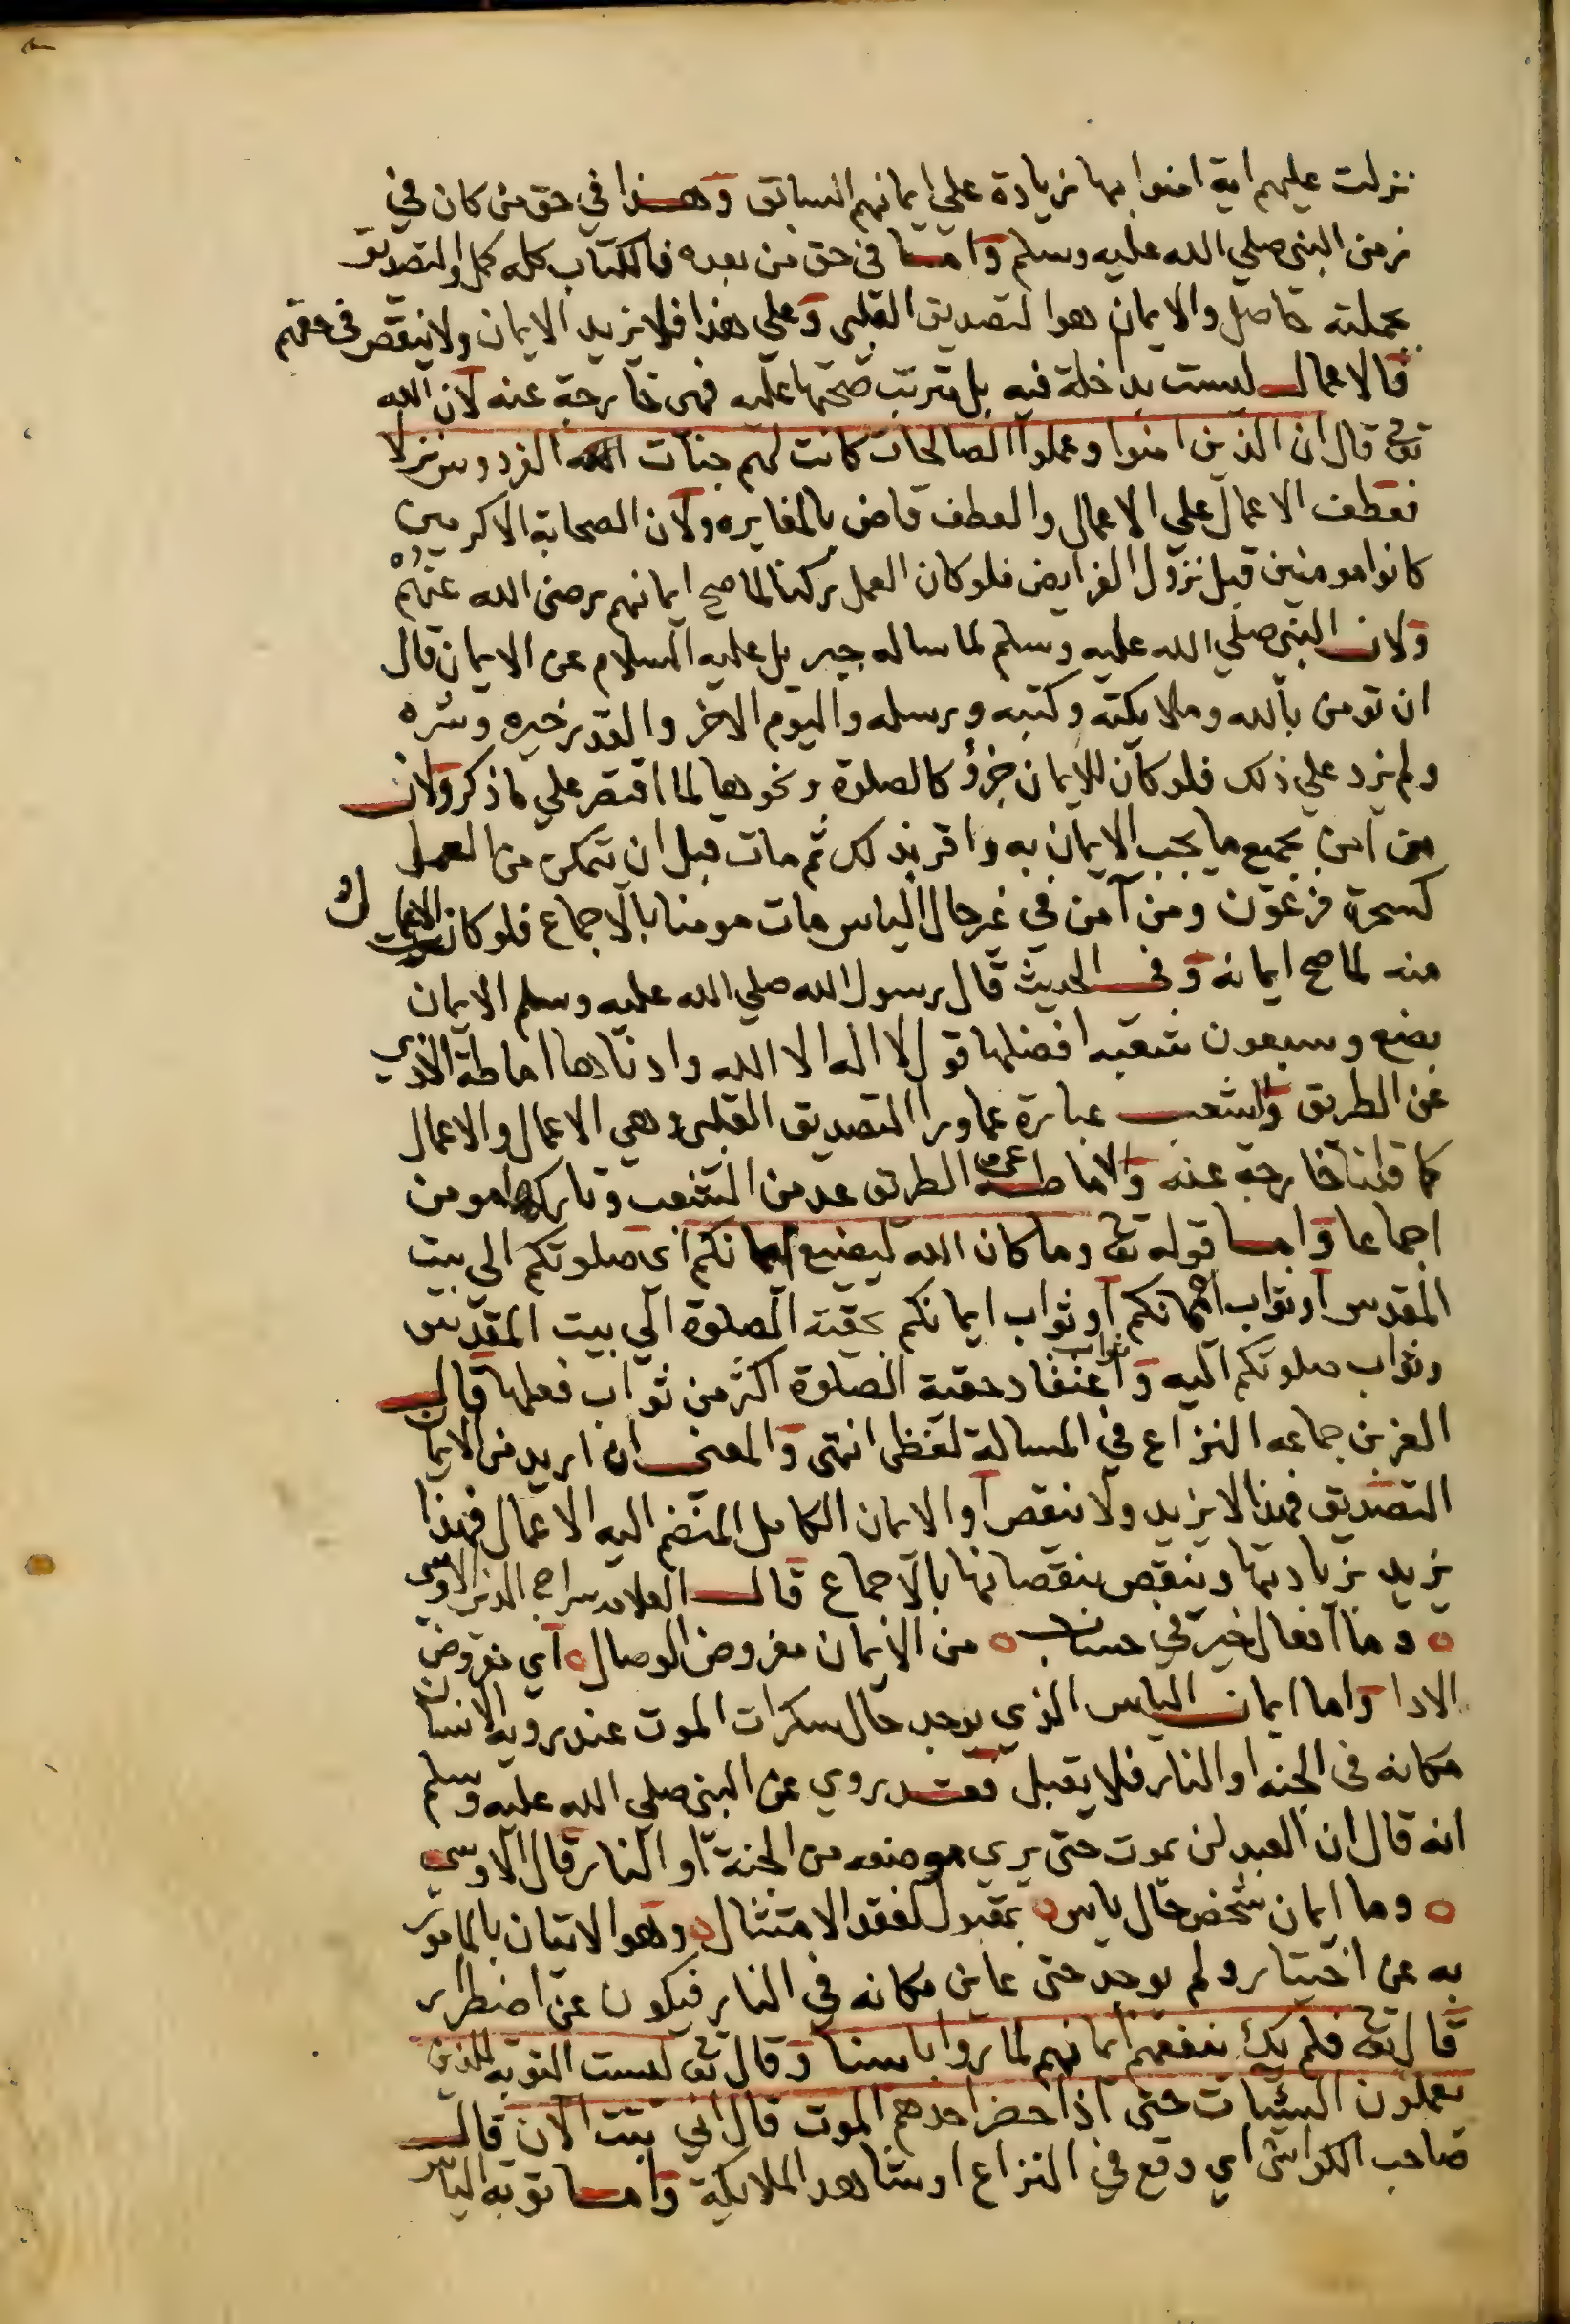 نزلت عليهم اية امنوا بها زيادة علي ايمانهم السابق وهذا في حق من كان في
زمن النبي صلي الله عليه وسلم واما في حق من بعده فالكتاب كله كمل والتصديق
بجملته حاصل والايمان هو التصديق القلبي وعلي هذا فلا يزيد الايمان ولا ينقص في حقهم
فالاعمال ليست بداخلة فيه بل يترتب صحتها عليه فهى خارجة عنه لان الله
تعالى قال ان الذين امنوا وعملوا الصالحات كانت لهم جنات الفردوس نزلا
فعطف الاعمال علي الاعمال والعطف قاض بالمغايره ولان الصحابة الاكرمين
كانوا مومنين قبل نزول الفرايض فلو كان العمل ركنا لما صح ايمانهم رضى الله عنهم
ولان النبي صلي الله عليه وسلم لما ساله جبريل عليه السلام عن الايمان قال
ان تومن بالله وملايكته وكتبه ورسله واليوم الاخر والقدر خيره وشره
ولم يزد علي ذلك فلو كان للايمان جزؤ كالصلوة ونحوها لما اقتصر علي ما ذكر ولان
من امن بجميع ما يجب الايمان به واقر بذلك ثم مات قبل ان يتمكن من العمل
كسحرة فرعون ومن آمن في غير حال الياس مات مومنا بالاجماع فلو كان الاعمال
منه لما صح ايمانه وفى الحديث قال رسول الله صلي الله عليه وسلم الايمان
بضع وسبعون شعبه افضلها قول لا اله الا الله وادناها اماطة الاذي
عن الطريق والشعب عبارة عما ورا التصديق القلبي وهي الاعمال والاعمال
كما قلنا خارجة عنه والاماطة عن الطريق عد من الشعب وتاركها مومن
اجماعا واما قوله تعالى وما كان الله ليضيع ايمانكم اي صلوتكم الي بيت
المقدس او ثواب ايمانكم او ثواب ايمانكم بحقية الصلوة الي بيت المقدس
وثواب صلوتكم اليه وثواب اعتقاد حقية الصلوة اكثر من ثواب فعلها قال
العز بن جماعه النزاع في المسالة لفظى انتهى والمعنى ان اريد من الايمان
التصديق فهذا لا يزيد ولا ينقص او الايمان الكامل المنضم اليه الاعمال فهذا
يزيد بزيادتها وينقص بنقصانها بالاجماع قال العلامه سراج الدين الاوسى
وما افعال خير في حساب ٥ من الايمان مفروض الوصال ٥ اي مفروض
الادا واما ايمان الياس الذي يوجد حال سكرات الموت عند روية الانسان
مكانه في الجنه او النار فلا يقبل فقد روي عن النبي صلي الله عليه وسلم
انه قال ان العبد لن يموت حتى يري موضعه من الجنة او النار قال الاوسى
وما ايمان شخص حال ياس ٥ بمقبول لفقد الامتثال ٥ وهو الاتيان بالمامور
به عن اختيار ولم يوجد حتى عاين مكانه في النار فيكون عن اضطرار
قال تعالى فلم يك ينفعهم ايمانهم لما راوا باسنا وقال تعالى ليست التوبه للذين
يعملون السيئات حتى اذا حضر احدهم الموت قال اني تبت الآن قال
صاحب الكواشى اي وقع في النزاع او شاهد الملايكة واما توبه الياس